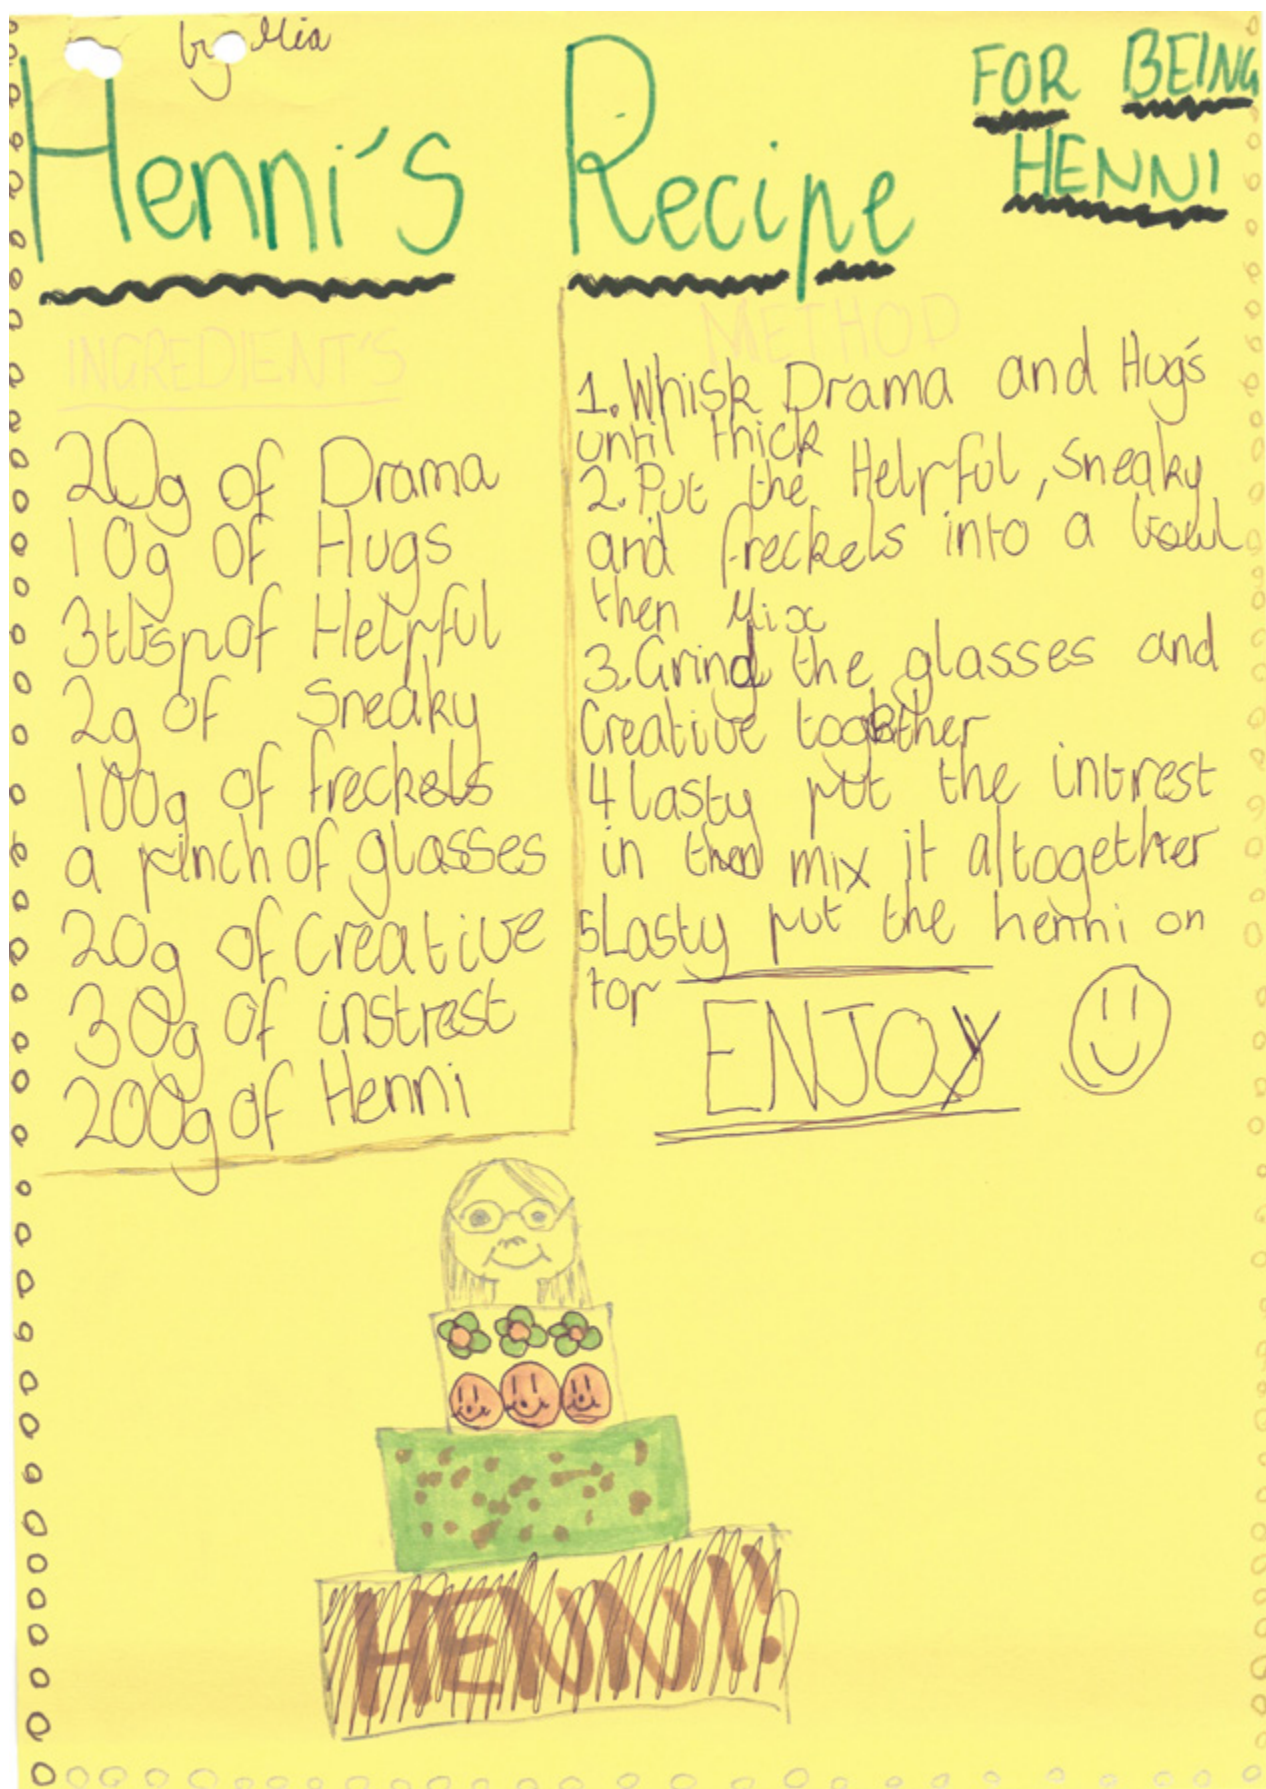 by Mia
Henni's Recipe
FOR BEING
HENNI
INGREDIENT'S
20g of Drama
10g of Hugs
3tbsp of Helpful
2g of Sneaky
100g of freckels
a pinch of glasses
20g of Creative
30g of instrest
200g of Henni
METHOD
1. Whisk Drama and Hug's
until thick
2. Put the Helpful, Sneaky
and freckels into a bowl
then Mix
3. Grind the glasses and
Creative together
4 lasty put the intrest
in then mix it altogether
5 Lasty put the henni on
top
ENJOY
HENNI!